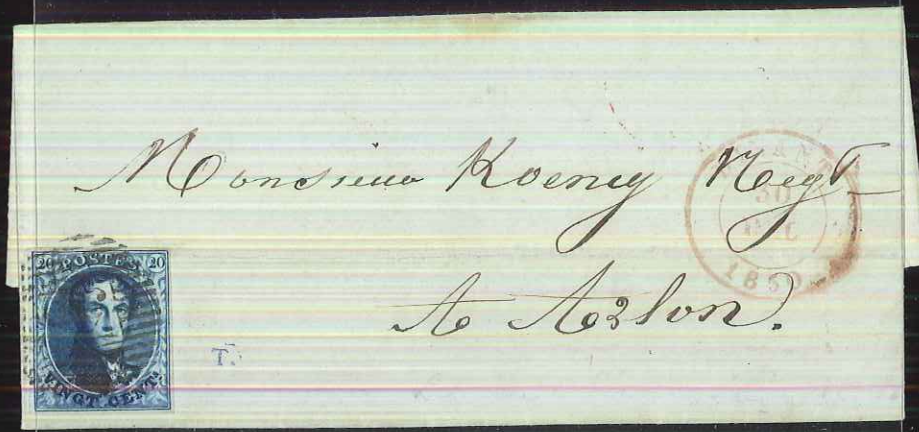 Monsieur Koenig Negt
A Arlon.
30
1850
20 POSTES 20
VINGT CENTS
T.